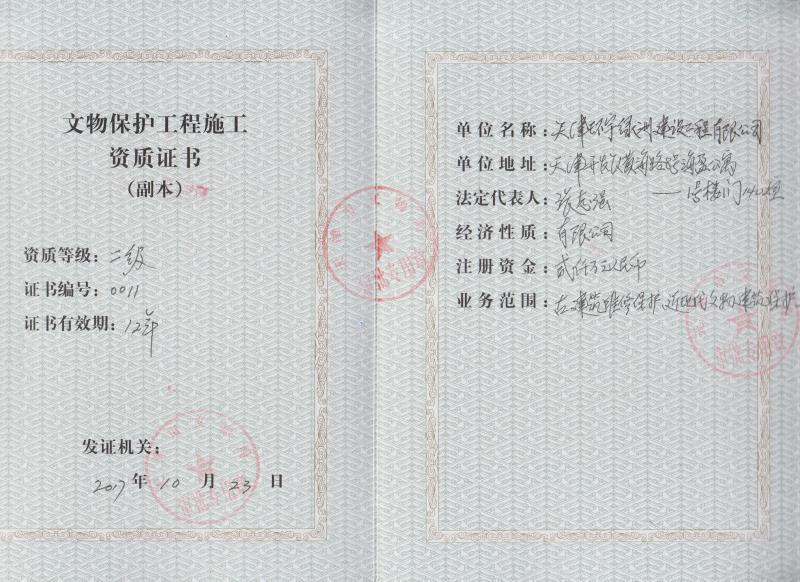 文物保护工程施工
资质证书
（副本）
资质等级：二级
证书编号：0011
证书有效期：12年
发证机关：
2017年10月23日
单位名称：天津环宇绿洲建设工程有限公司
单位地址：天津开发区黄海路
法定代表人：张志强
经济性质：有限公司
注册资金：贰仟万元人民币
业务范围：古建筑维修保护、近现代文物建筑保护